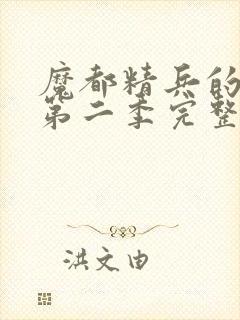 魔都精兵的
第二季完整
洪文由